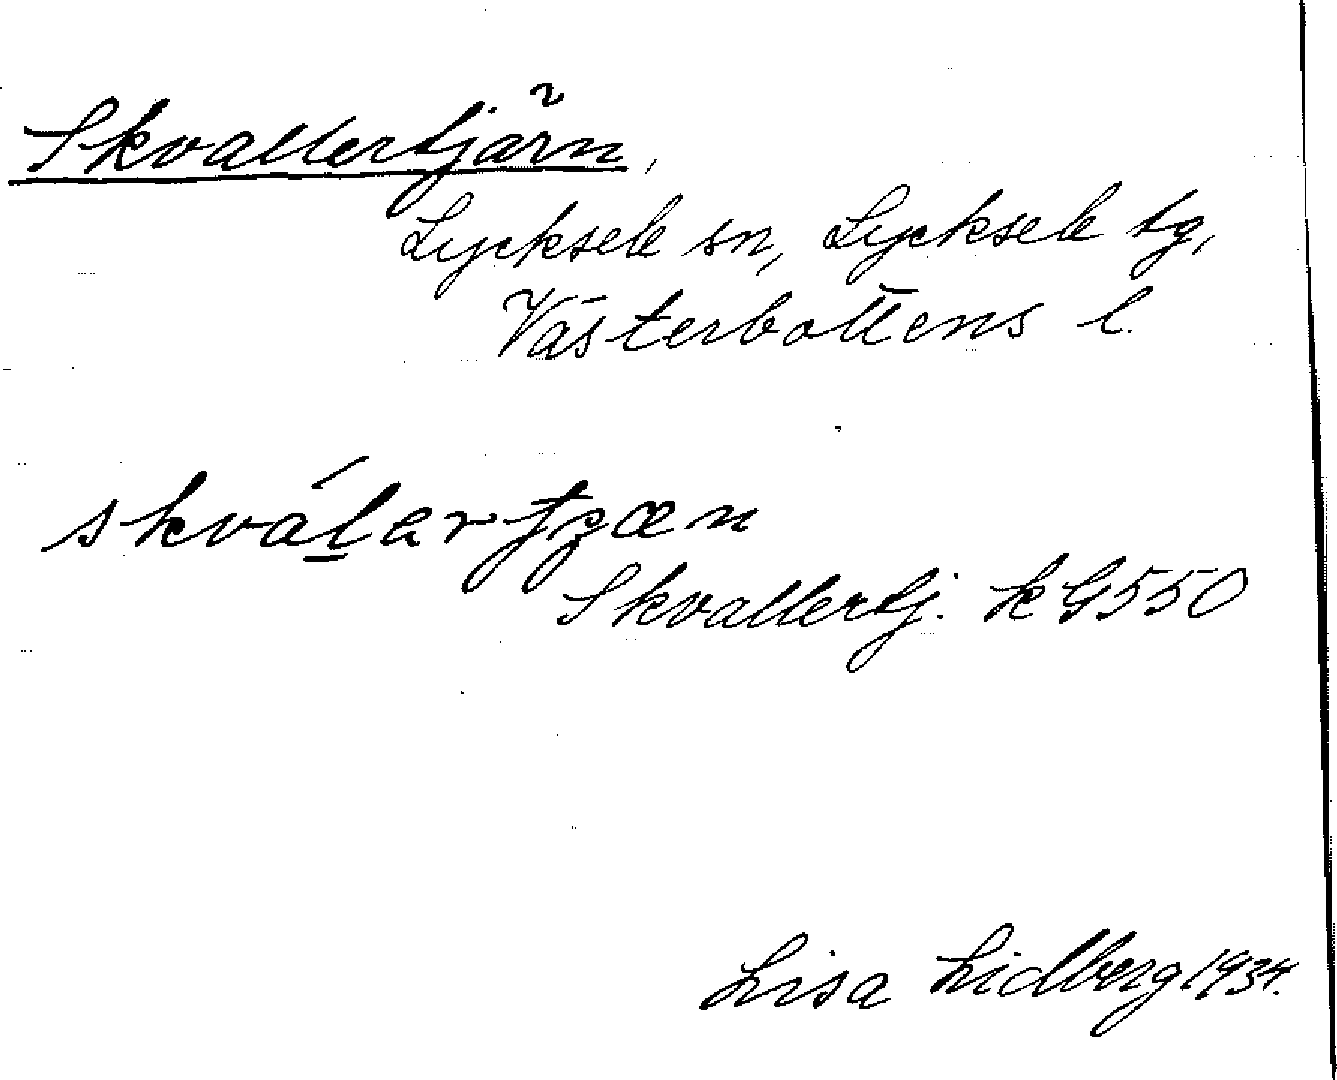 Skvallertjärn,
Lycksele sn, Lycksele tg,
Västerbottens l.
skválartjæn
Skvallertj. k G550
Lisa Lidberg 1934.